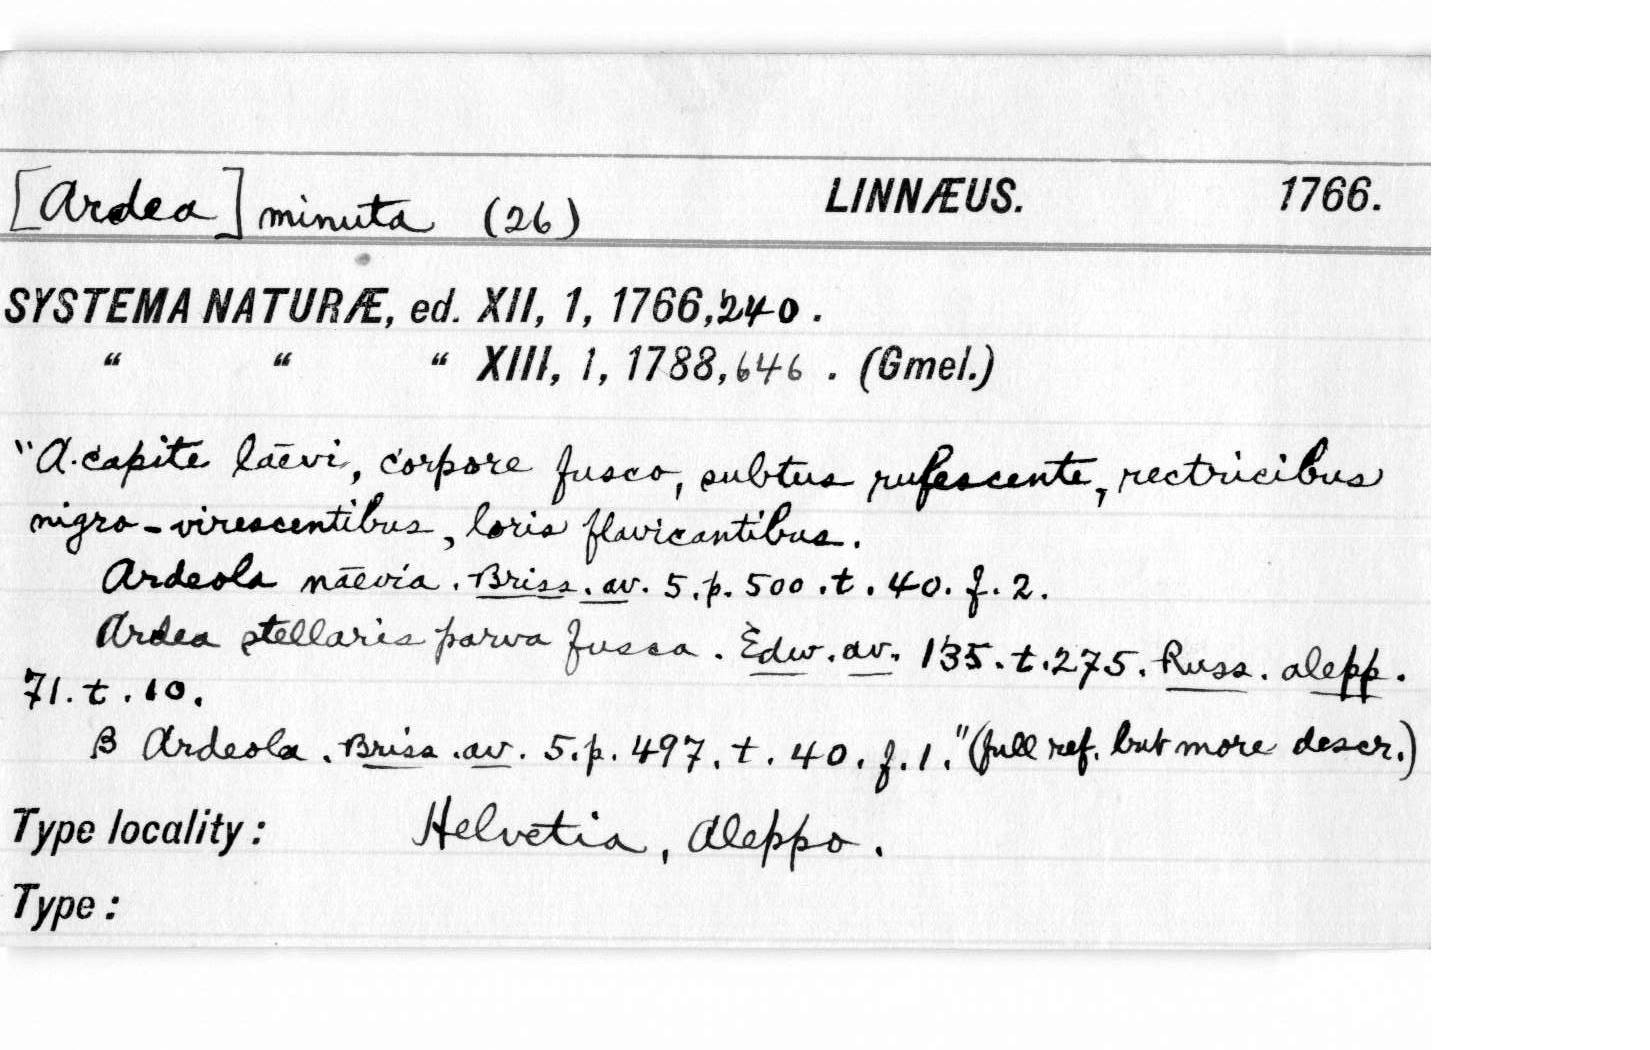 [Ardea] minuta (26) LINNÆUS. 1766.
SYSTEMA NATURÆ, ed. XII, 1, 1766, 240.
“ “ “ XIII, 1, 1788, 646. (Gmel.)
"A. capite lāevi, corpore fusco, subtus rufescente, rectricibus
nigro-virescentibus, loris flavicantibus.
Ardeola nāevia. Briss. av. 5. p. 500. t. 40. f. 2.
Ardea stellaris parva fusca. Edw. av. 135. t. 275. Russ. alepp.
71. t. 10.
β Ardeola. Briss. av. 5. p. 497. t. 40. f. 1." (full ref. but more descr.)
Type locality: Helvetia, Aleppo.
Type: